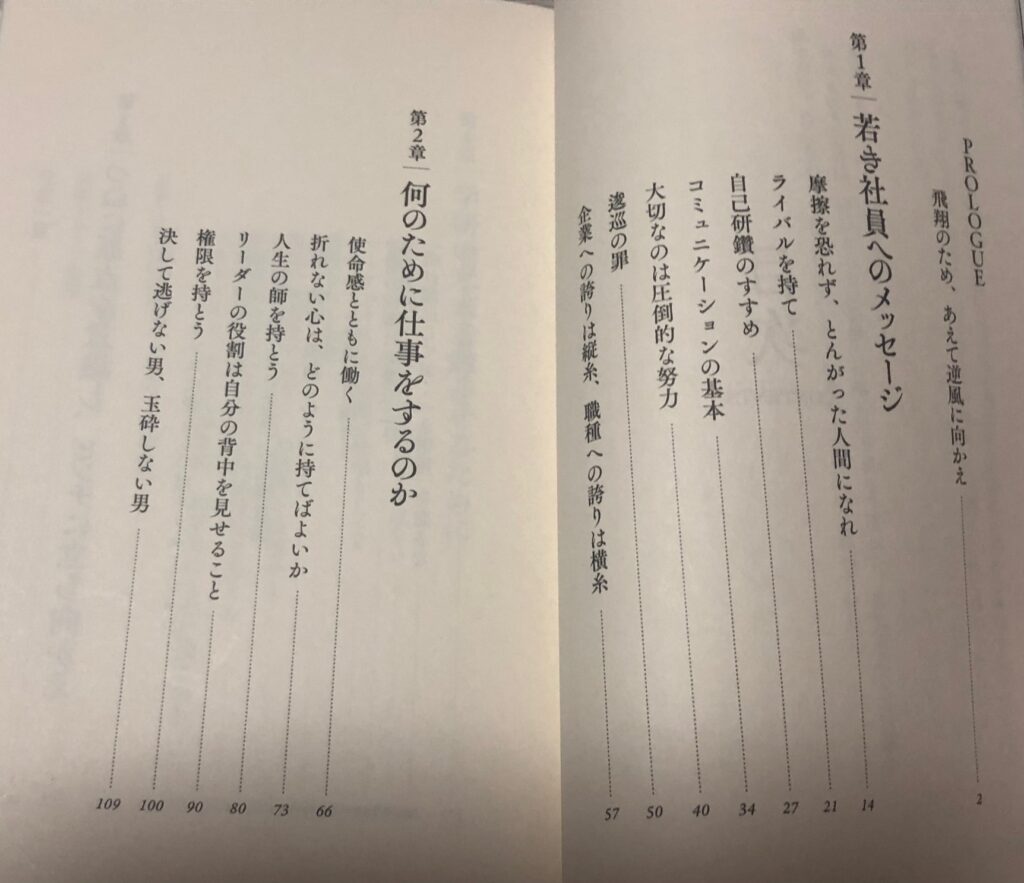 PROLOGUE
飛翔のため、あえて逆風に向かえ 2
第1章 若き社員へのメッセージ
摩擦を恐れず、とんがった人間になれ 14
ライバルを持て 21
自己研鑽のすすめ 27
コミュニケーションの基本 34
大切なのは圧倒的な努力 40
逡巡の罪 50
企業への誇りは縦糸、職種への誇りは横糸 57
第2章 何のために仕事をするのか
使命感とともに働く 66
折れない心は、どのように持てばよいか 73
人生の師を持とう 80
リーダーの役割は自分の背中を見せること 90
権限を持とう 100
決して逃げない男、玉砕しない男 109